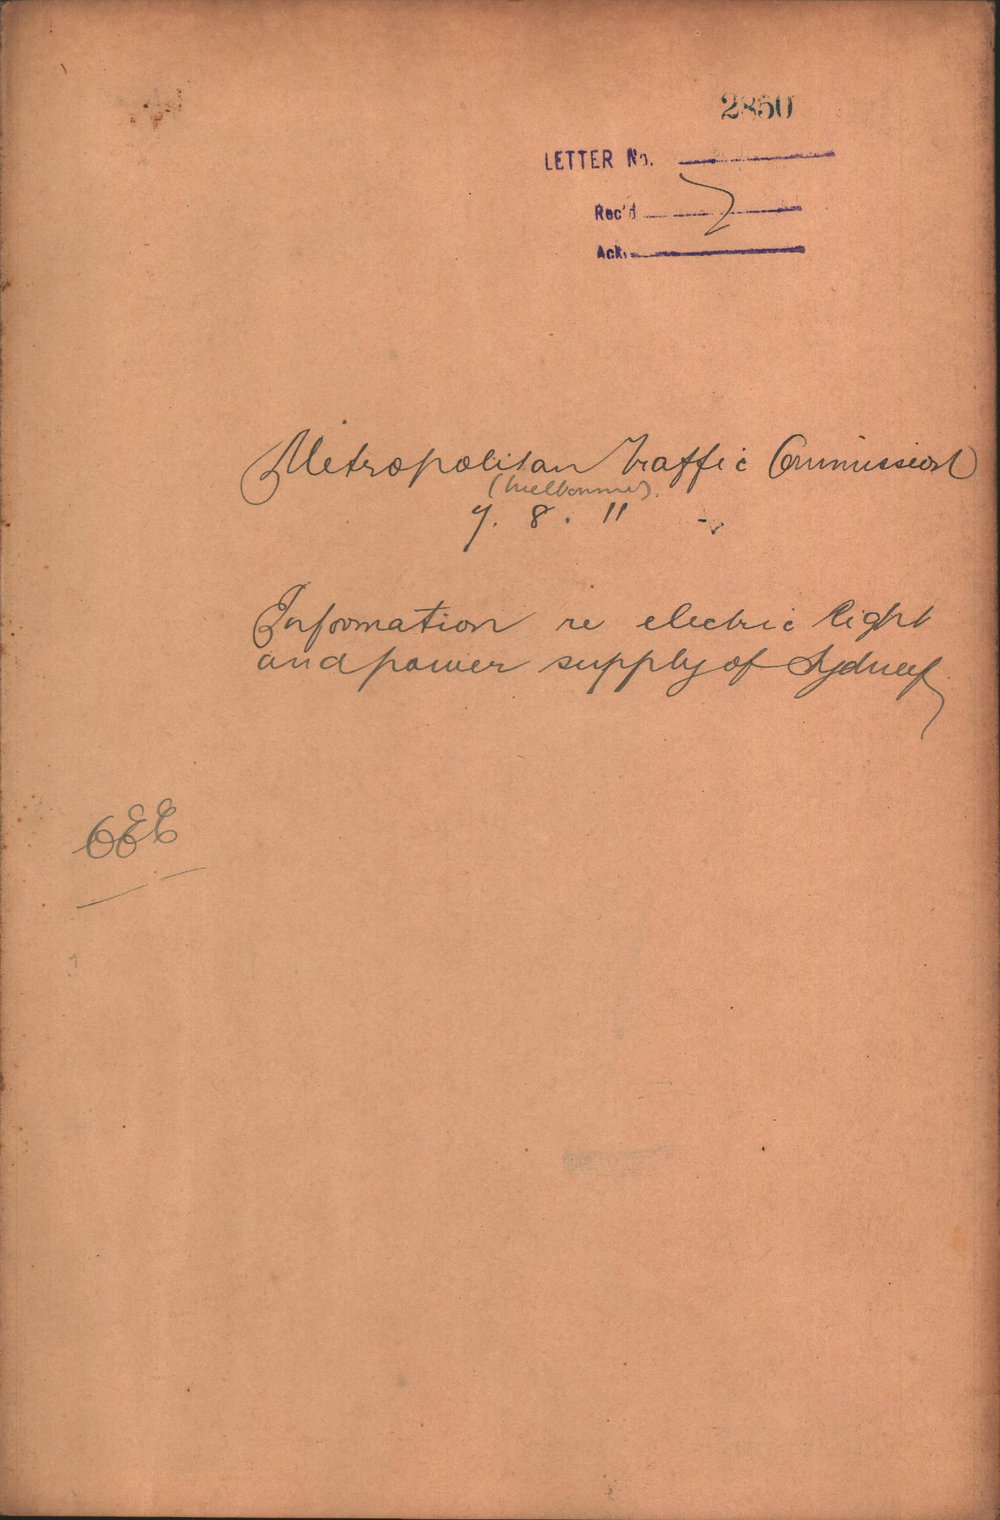 2850
LETTER No.
Rec'd
Ack.
Metropolitan Traffic Commission
(Melbourne).
7. 8. 11
Information re electric light
and power supply of Sydney